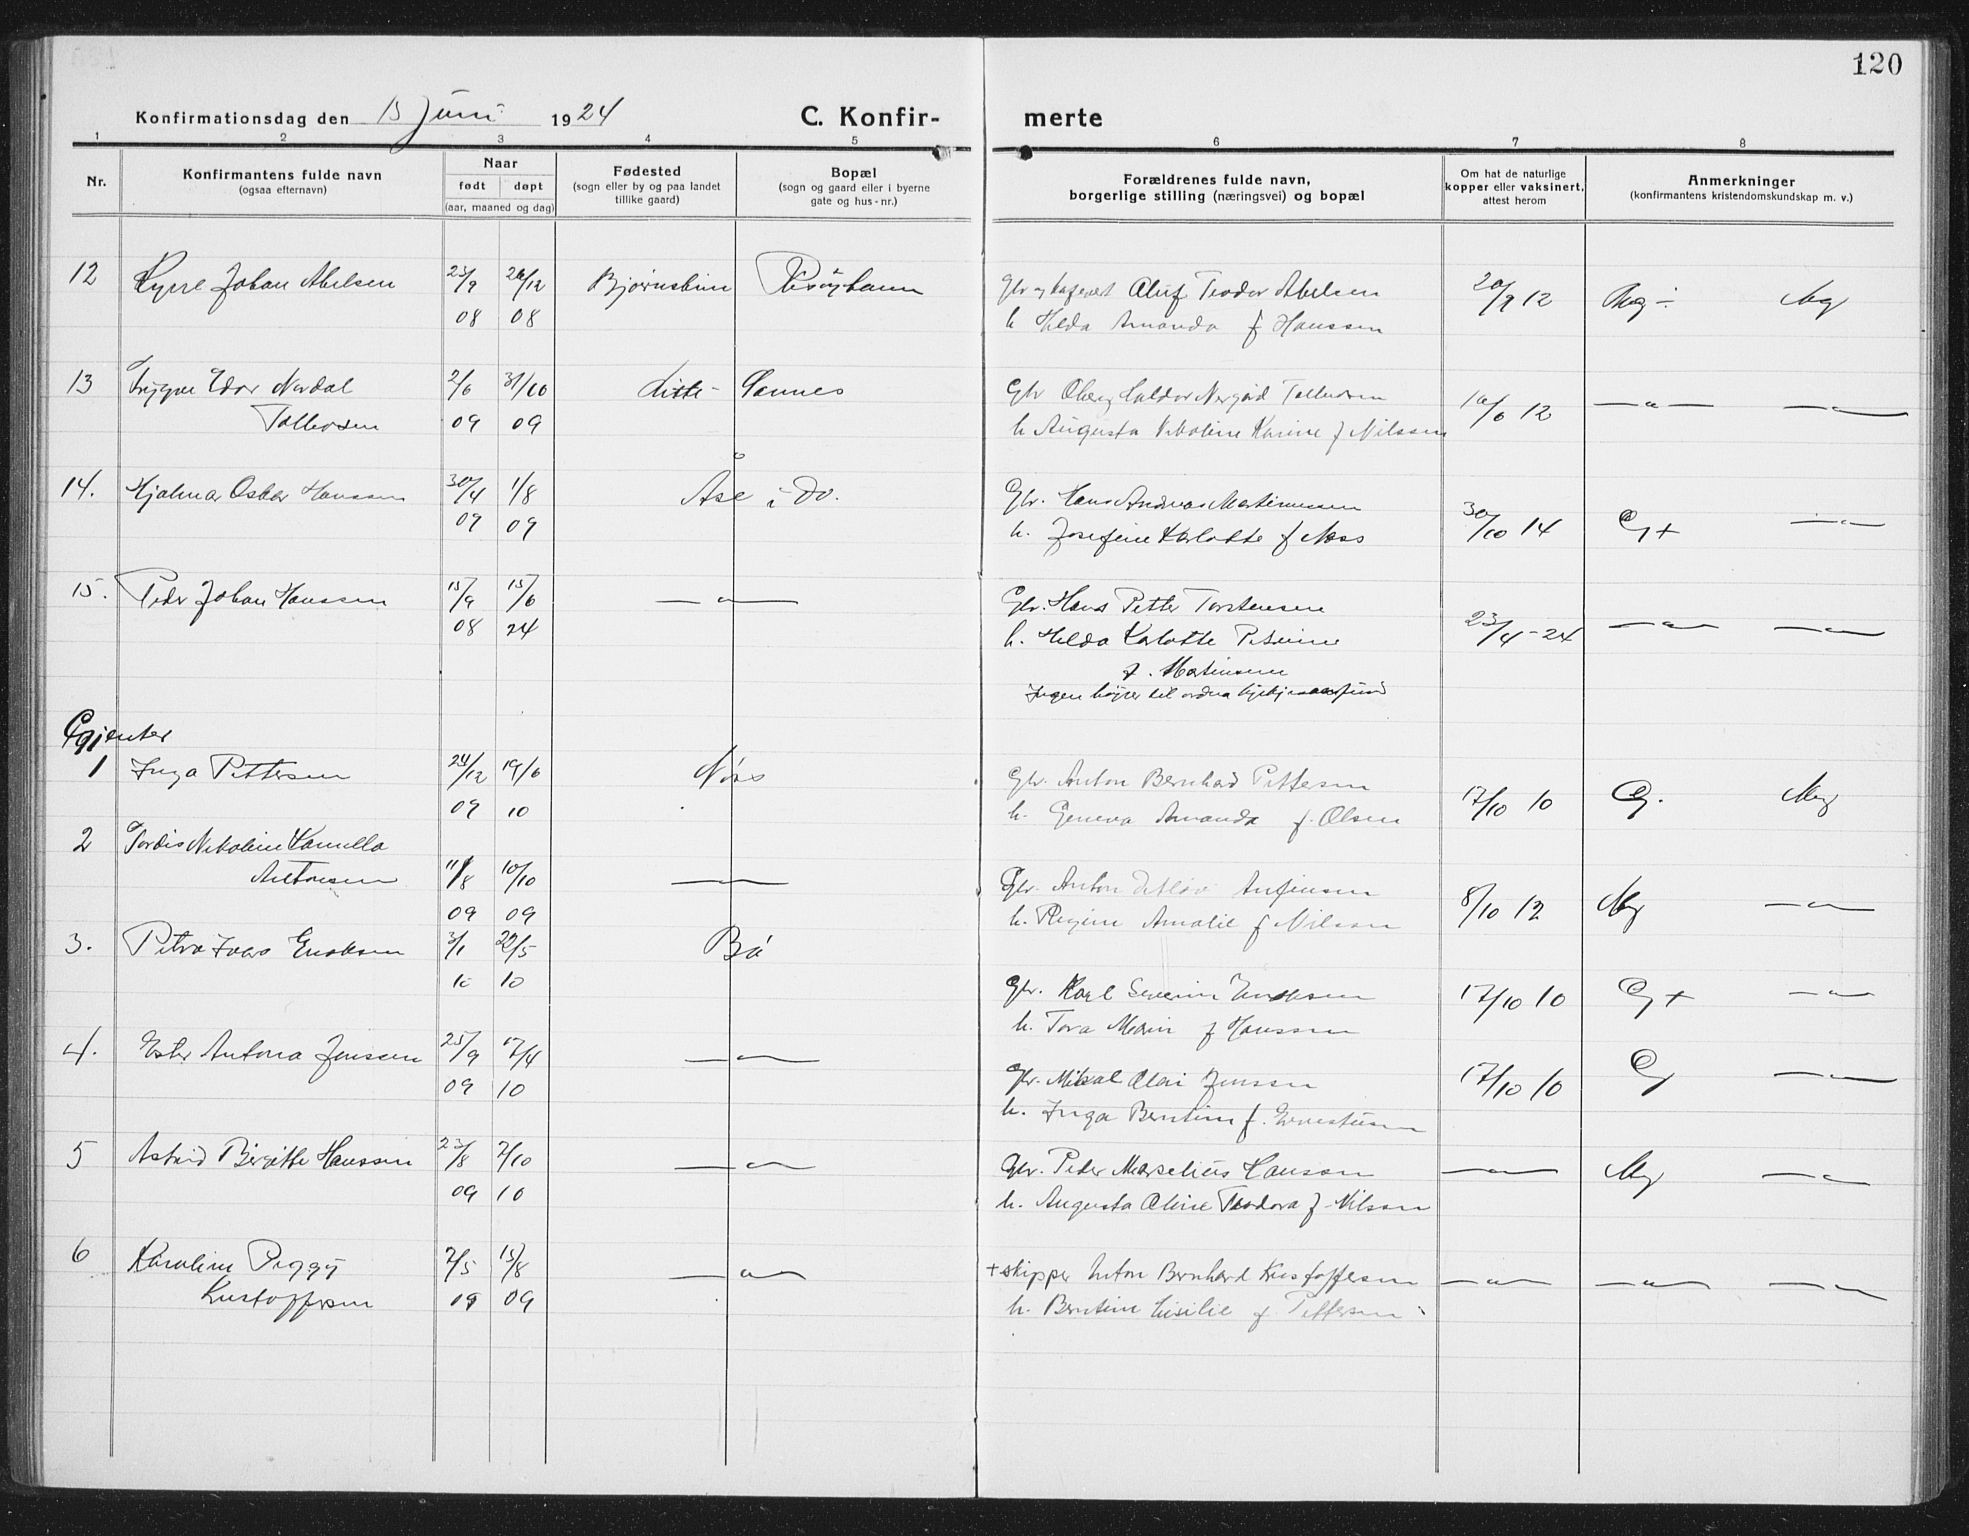 120
Konfirmationsdag den 15 Juni 1924 C. Konfirmerte
1 2 3 4 5 6 7 8
Nr.
Konfirmantens fulde navn
(ogsaa efternavn)
Naar
født døpt
(aar, maaned og dag)
Fødested
(sogn eller by og paa landet
tillike gaard)
Bopæl
(sogn og gaard eller i byerne
gate og hus-nr.)
Forældrenes fulde navn,
borgerlige stilling (næringsvei) og bopæl
Om hat de naturlige
kopper eller vaksinert,
attest herom
Anmerkninger
(konfirmantens kristendomskundskap m. v.)
12 Kyrre Johan Abelsen 23/9 26/12 Oluf Teodor Abelsen 20/9 12 Mg ÷ Mg
08 08 h Hilda Amanda f Hanssen
13 Trygve Edor Nordal 2/6 31/10 ditto - Sannes Gbr 12 — " — — " —
Tollevsen 09 09 h Augusta Nikoline Karine f Nilssen
14. Hjalmar Oskar Hanssen 30/4 1/8 Åse i do. Gbr. Hans Andreas Martinussen 30/10 14 G+ — " —
09 09 h. Josefine Karlotte f Moss
15. Peder Johan Hanssen 15/9 15/6 — " — Gbr. Hans Petter Torstensen 23/4-24 — " — — " —
08 24 h. Hilda Karlotte
f. Martinsen
Ingen
Gjenter
1 Inga Pettersen 24/12 19/6 Nöss Gbr. Anton Bernhard Pettersen 17/10 10 G. Mg
09 10 h. Geneva Amanda f. Olsen
2 Tordis Nikoline Kamilla
Antonsen 11/8 10/10 — " — Gbr. Anton 8/10 12 Mg — " —
09 09 h. Regine Amalie f Nilsen
3. Petra Enoksen 3/1 22/5 Bö
10 10 Gbr. Karl Severin Enoksen 17/10 10 G+ — " —
h. Tora Marie f Hanssen
4. Ester Antona Jenssen 25/9 17/4 — " — Gbr. Mikal Olai Jenssen 17/10 10 G — " —
09 10 h. Inga Bentine f. Ernestussen
5 Astrid Birgitte Hanssen 23/8 2/10 — " — Gbr. Peder Marselius Hanssen — " — Mg — " —
09 10 h. Augusta Oline Teodora f. Nilssen
6 Karoline Peggy 7/5 15/8 — " — + skipper Anton Bernhard Kristoffersen — " — — " — — " —
Kristoffersen 09 09 h. Bentine f Pettersen